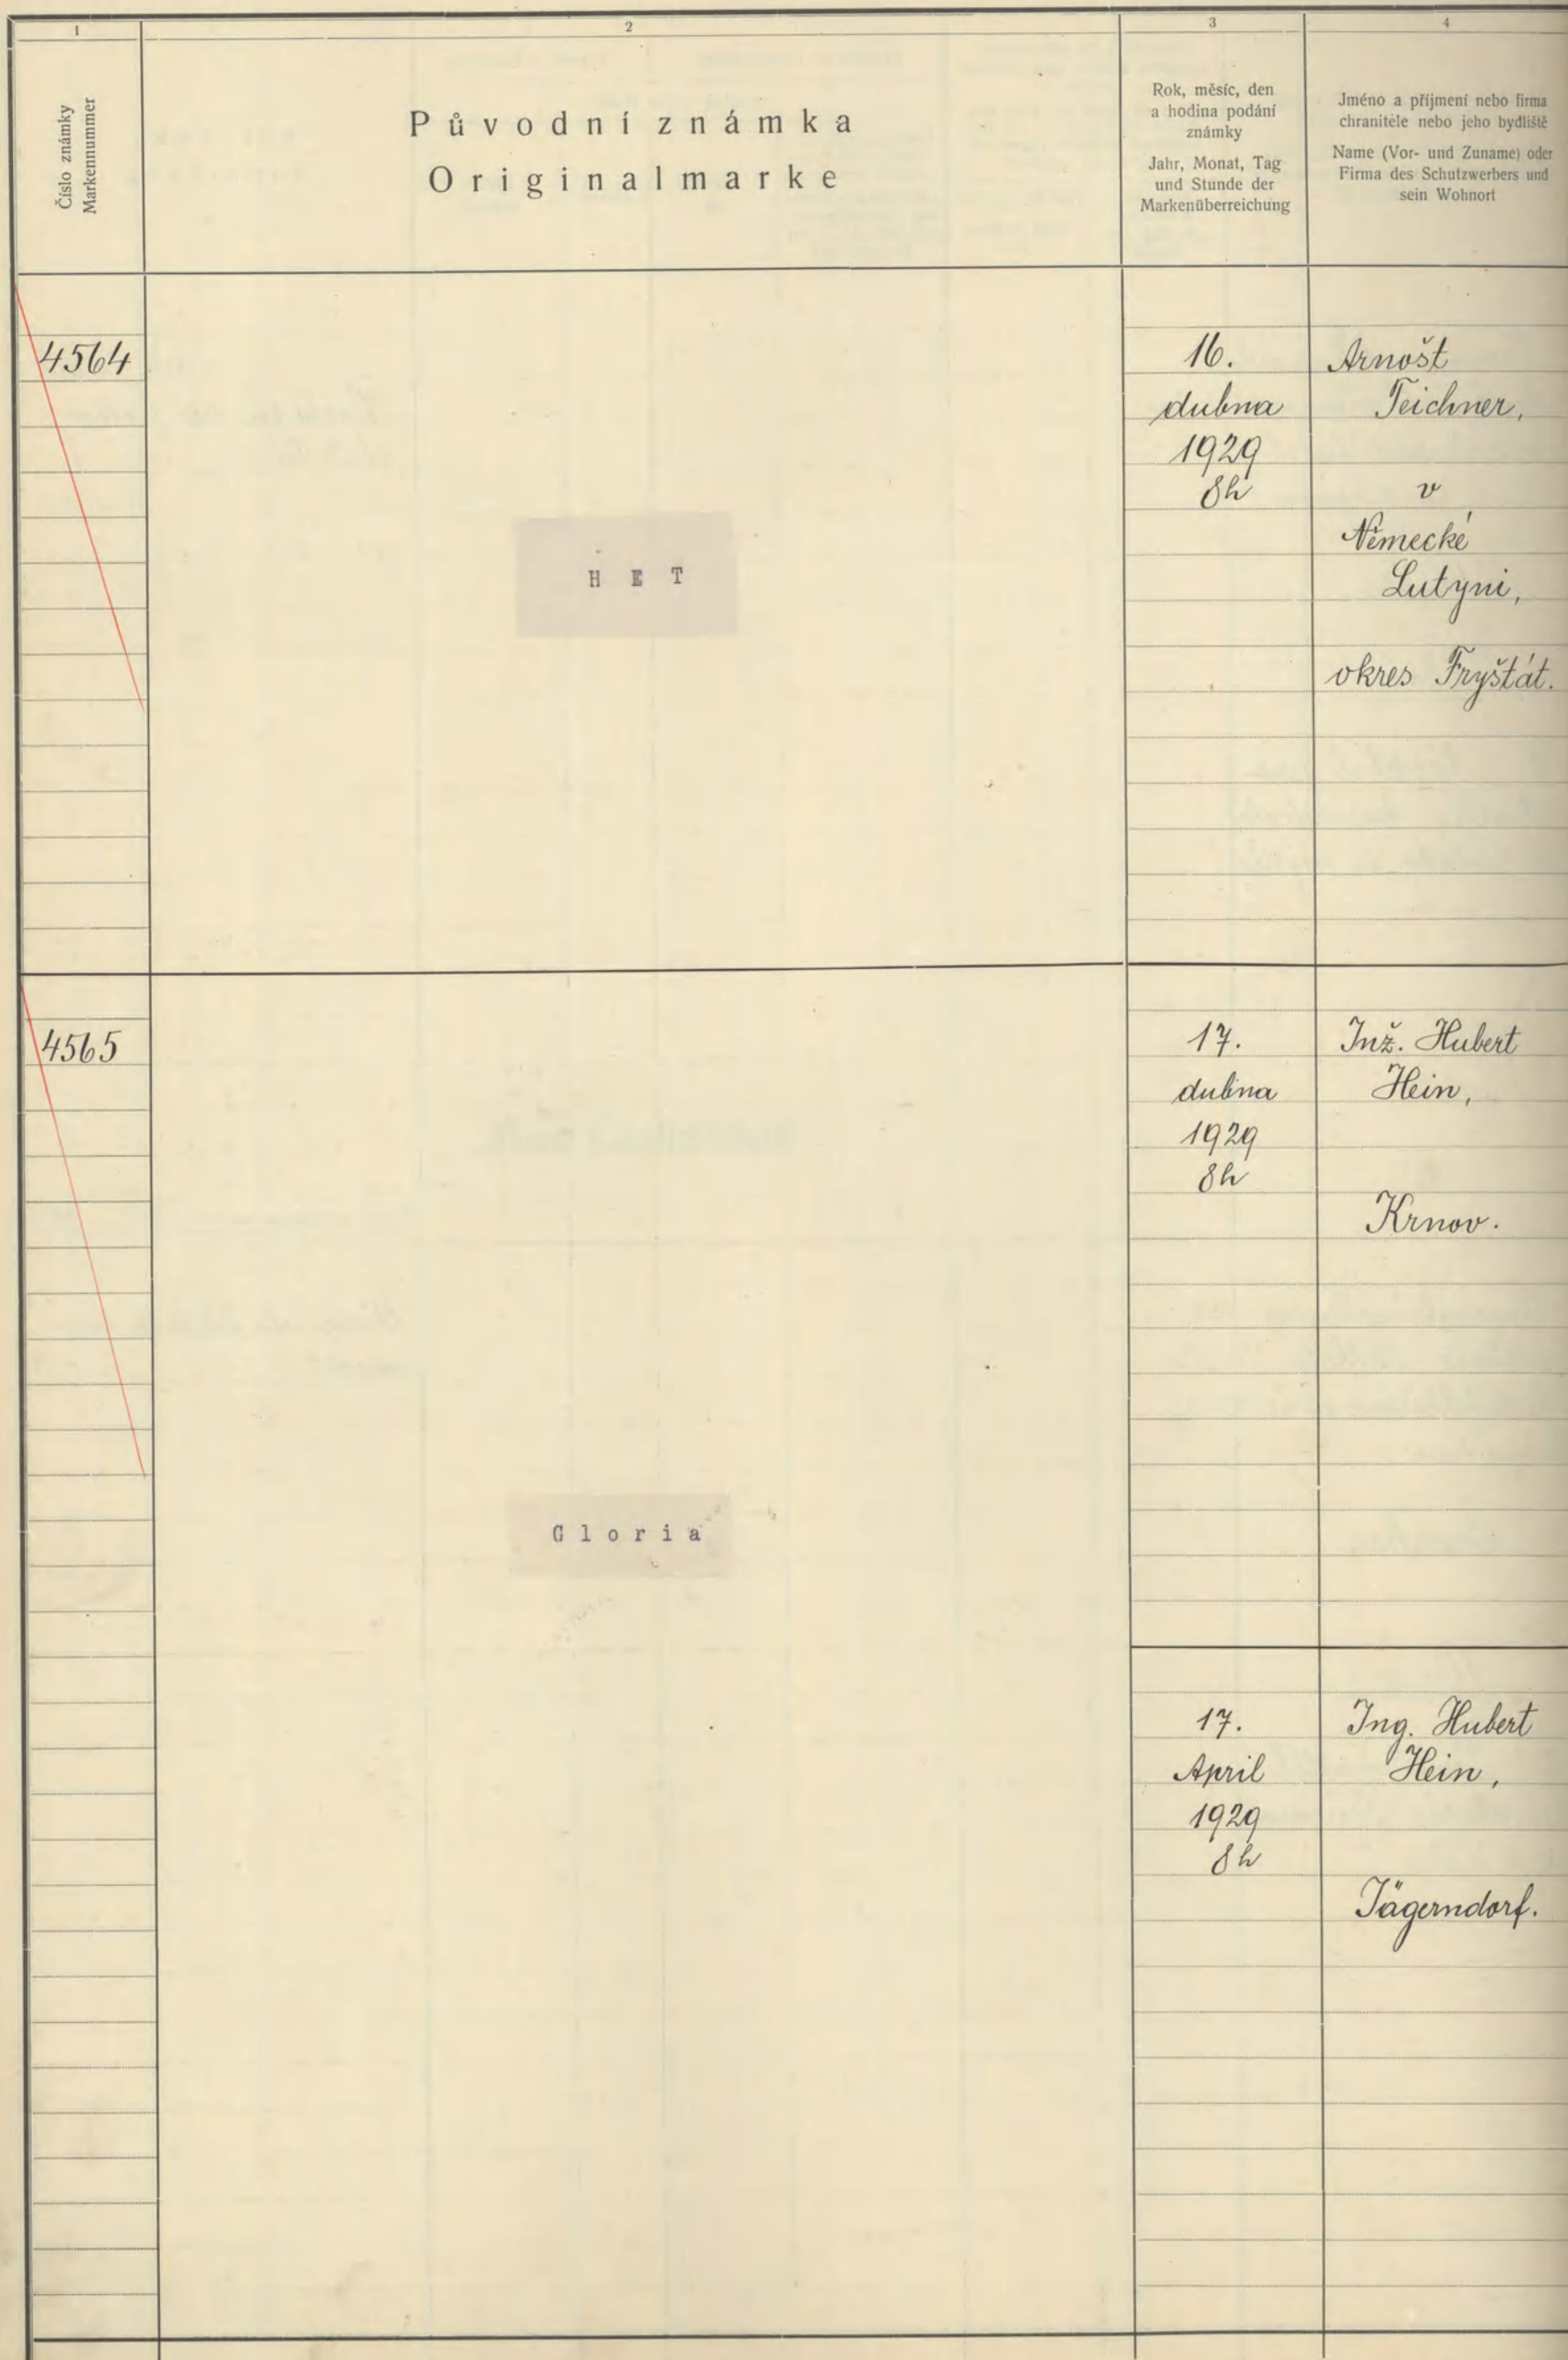 1
2
3
4
Číslo známky
Markennummer
Původní známka
Originalmarke
Rok, měsíc, den
a hodina podání
známky
Jahr, Monat, Tag
und Stunde der
Markenüberreichung
Jméno a příjmení nebo firma
chranitele nebo jeho bydliště
Name (Vor- und Zuname) oder
Firma des Schutzwerbers und
sein Wohnort
4564
H E T
16.
dubna
1929
8h
Arnošt
Teichner,
v
Německé
Lutyni,
okres Fryštát.
4565
Gloria
17.
dubna
1929
8h
Inž. Hubert
Hein,
Krnov.
17.
April
1929
8h
Ing. Hubert
Hein,
Jägerndorf.